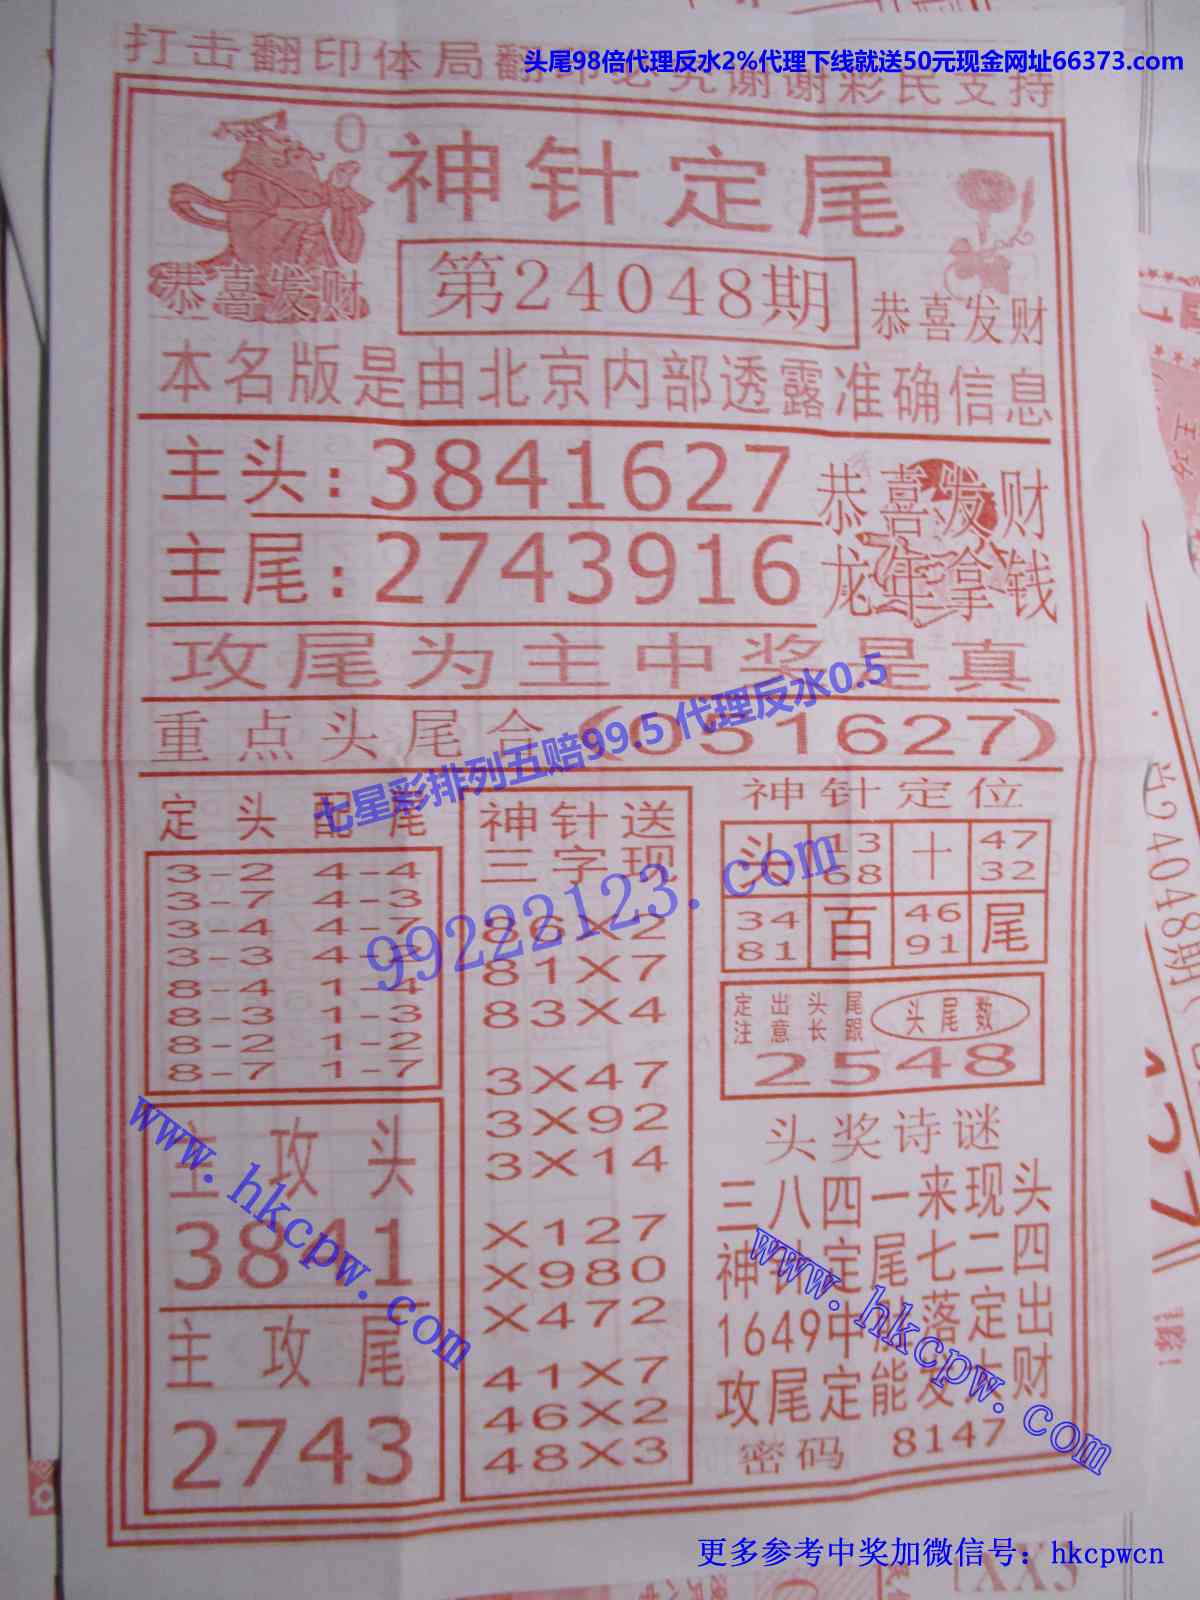 头尾98倍代理反水2%代理下线就送50元现金网址66373.com
打击翻印体局翻印必究谢谢彩民支持
神针定尾
第24048期
恭喜发财
恭喜发财
本名版是由北京内部透露准确信息
主头:3841627
主尾:2743916
恭喜发财
龙年拿钱
攻尾为主中奖是真
重点头尾合(051627)
七星彩排列五赔99.5代理反水0.5
99222123.com
定头配尾
3-2 4-4
3-7 4-3
3-4 4-7
3-3 4-2
8-4 1-4
8-3 1-3
8-2 1-2
8-7 1-7
主攻头
3841
主攻尾
2743
神针送
三字现
86X2
81X7
83X4
3X47
3X92
3X14
X127
X980
X472
41X7
46X2
48X3
神针定位
头 13 68 十 47 32
34 81 百 46 91 尾
定出头尾
注意长跟
头尾数
2548
头奖诗谜
三八四一来现头
神针定尾七二四
1649中胜落定出
攻尾定能发大财
密码 8147
www.hkcpw.com
www.hkcpw.com
更多参考中奖加微信号：hkcpwcn